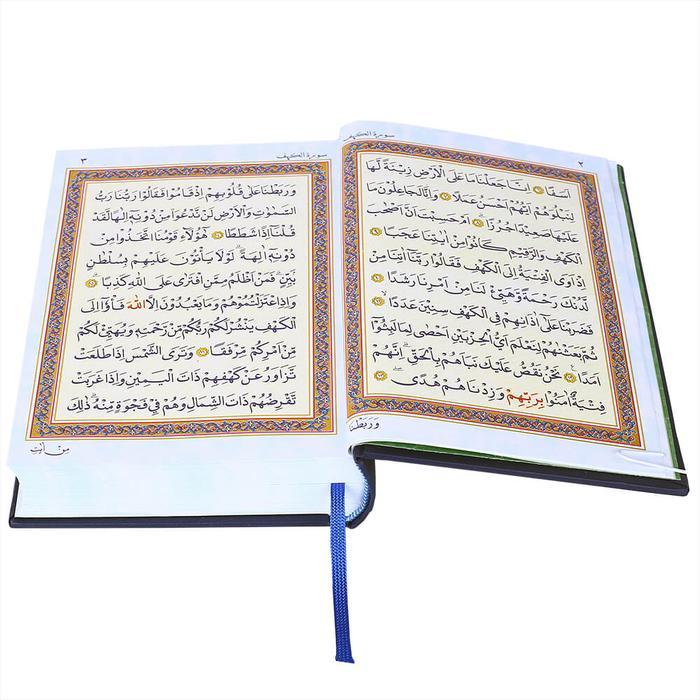 سورة الكهف
٢
اَسَفًا ۝ اِنَّا جَعَلْنَا مَا عَلَى الْاَرْضِ زِينَةً لَهَا
لِنَبْلُوَهُمْ اَيُّهُمْ اَحْسَنُ عَمَلًا ۝ وَاِنَّا لَجَاعِلُونَ مَا
عَلَيْهَا صَعِيدًا جُرُزًا ۝ اَمْ حَسِبْتَ اَنَّ اَصْحَابَ
الْكَهْفِ وَالرَّقِيمِ كَانُوا مِنْ اٰيَاتِنَا عَجَبًا ۝
اِذْ اَوَى الْفِتْيَةُ اِلَى الْكَهْفِ فَقَالُوا رَبَّنَا اٰتِنَا مِنْ
لَدُنْكَ رَحْمَةً وَهَيِّئْ لَنَا مِنْ اَمْرِنَا رَشَدًا ۝
فَضَرَبْنَا عَلٰى اٰذَانِهِمْ فِي الْكَهْفِ سِنِينَ عَدَدًا ۝
ثُمَّ بَعَثْنَاهُمْ لِنَعْلَمَ اَيُّ الْحِزْبَيْنِ اَحْصٰى لِمَا لَبِثُوا
اَمَدًا ۝ نَحْنُ نَقُصُّ عَلَيْكَ نَبَاَهُمْ بِالْحَقِّ اِنَّهُمْ
فِتْيَةٌ اٰمَنُوا بِرَبِّهِمْ وَزِدْنَاهُمْ هُدًى ۝
وَرَبَطْنَا
سورة الكهف
٣
وَرَبَطْنَا عَلٰى قُلُوبِهِمْ اِذْ قَامُوا فَقَالُوا رَبُّنَا رَبُّ
السَّمٰوَاتِ وَالْاَرْضِ لَنْ نَدْعُوَا مِنْ دُونِهٖ اِلٰهًا لَقَدْ
قُلْنَا اِذًا شَطَطًا ۝ هٰؤُلَاءِ قَوْمُنَا اتَّخَذُوا مِنْ
دُونِهٖ اٰلِهَةً لَوْلَا يَأْتُونَ عَلَيْهِمْ بِسُلْطَانٍ
بَيِّنٍ فَمَنْ اَظْلَمُ مِمَّنِ افْتَرٰى عَلَى اللّٰهِ كَذِبًا ۝
وَاِذِ اعْتَزَلْتُمُوهُمْ وَمَا يَعْبُدُونَ اِلَّا اللّٰهَ فَأْوُوا اِلَى
الْكَهْفِ يَنْشُرْ لَكُمْ رَبُّكُمْ مِنْ رَحْمَتِهٖ وَيُهَيِّئْ لَكُمْ
مِنْ اَمْرِكُمْ مِرْفَقًا ۝ وَتَرَى الشَّمْسَ اِذَا طَلَعَتْ
تَزَاوَرُ عَنْ كَهْفِهِمْ ذَاتَ الْيَمِينِ وَاِذَا غَرَبَتْ
تَقْرِضُهُمْ ذَاتَ الشِّمَالِ وَهُمْ فِي فَجْوَةٍ مِنْهُ ذٰلِكَ
مِنْ اٰيَاتِ